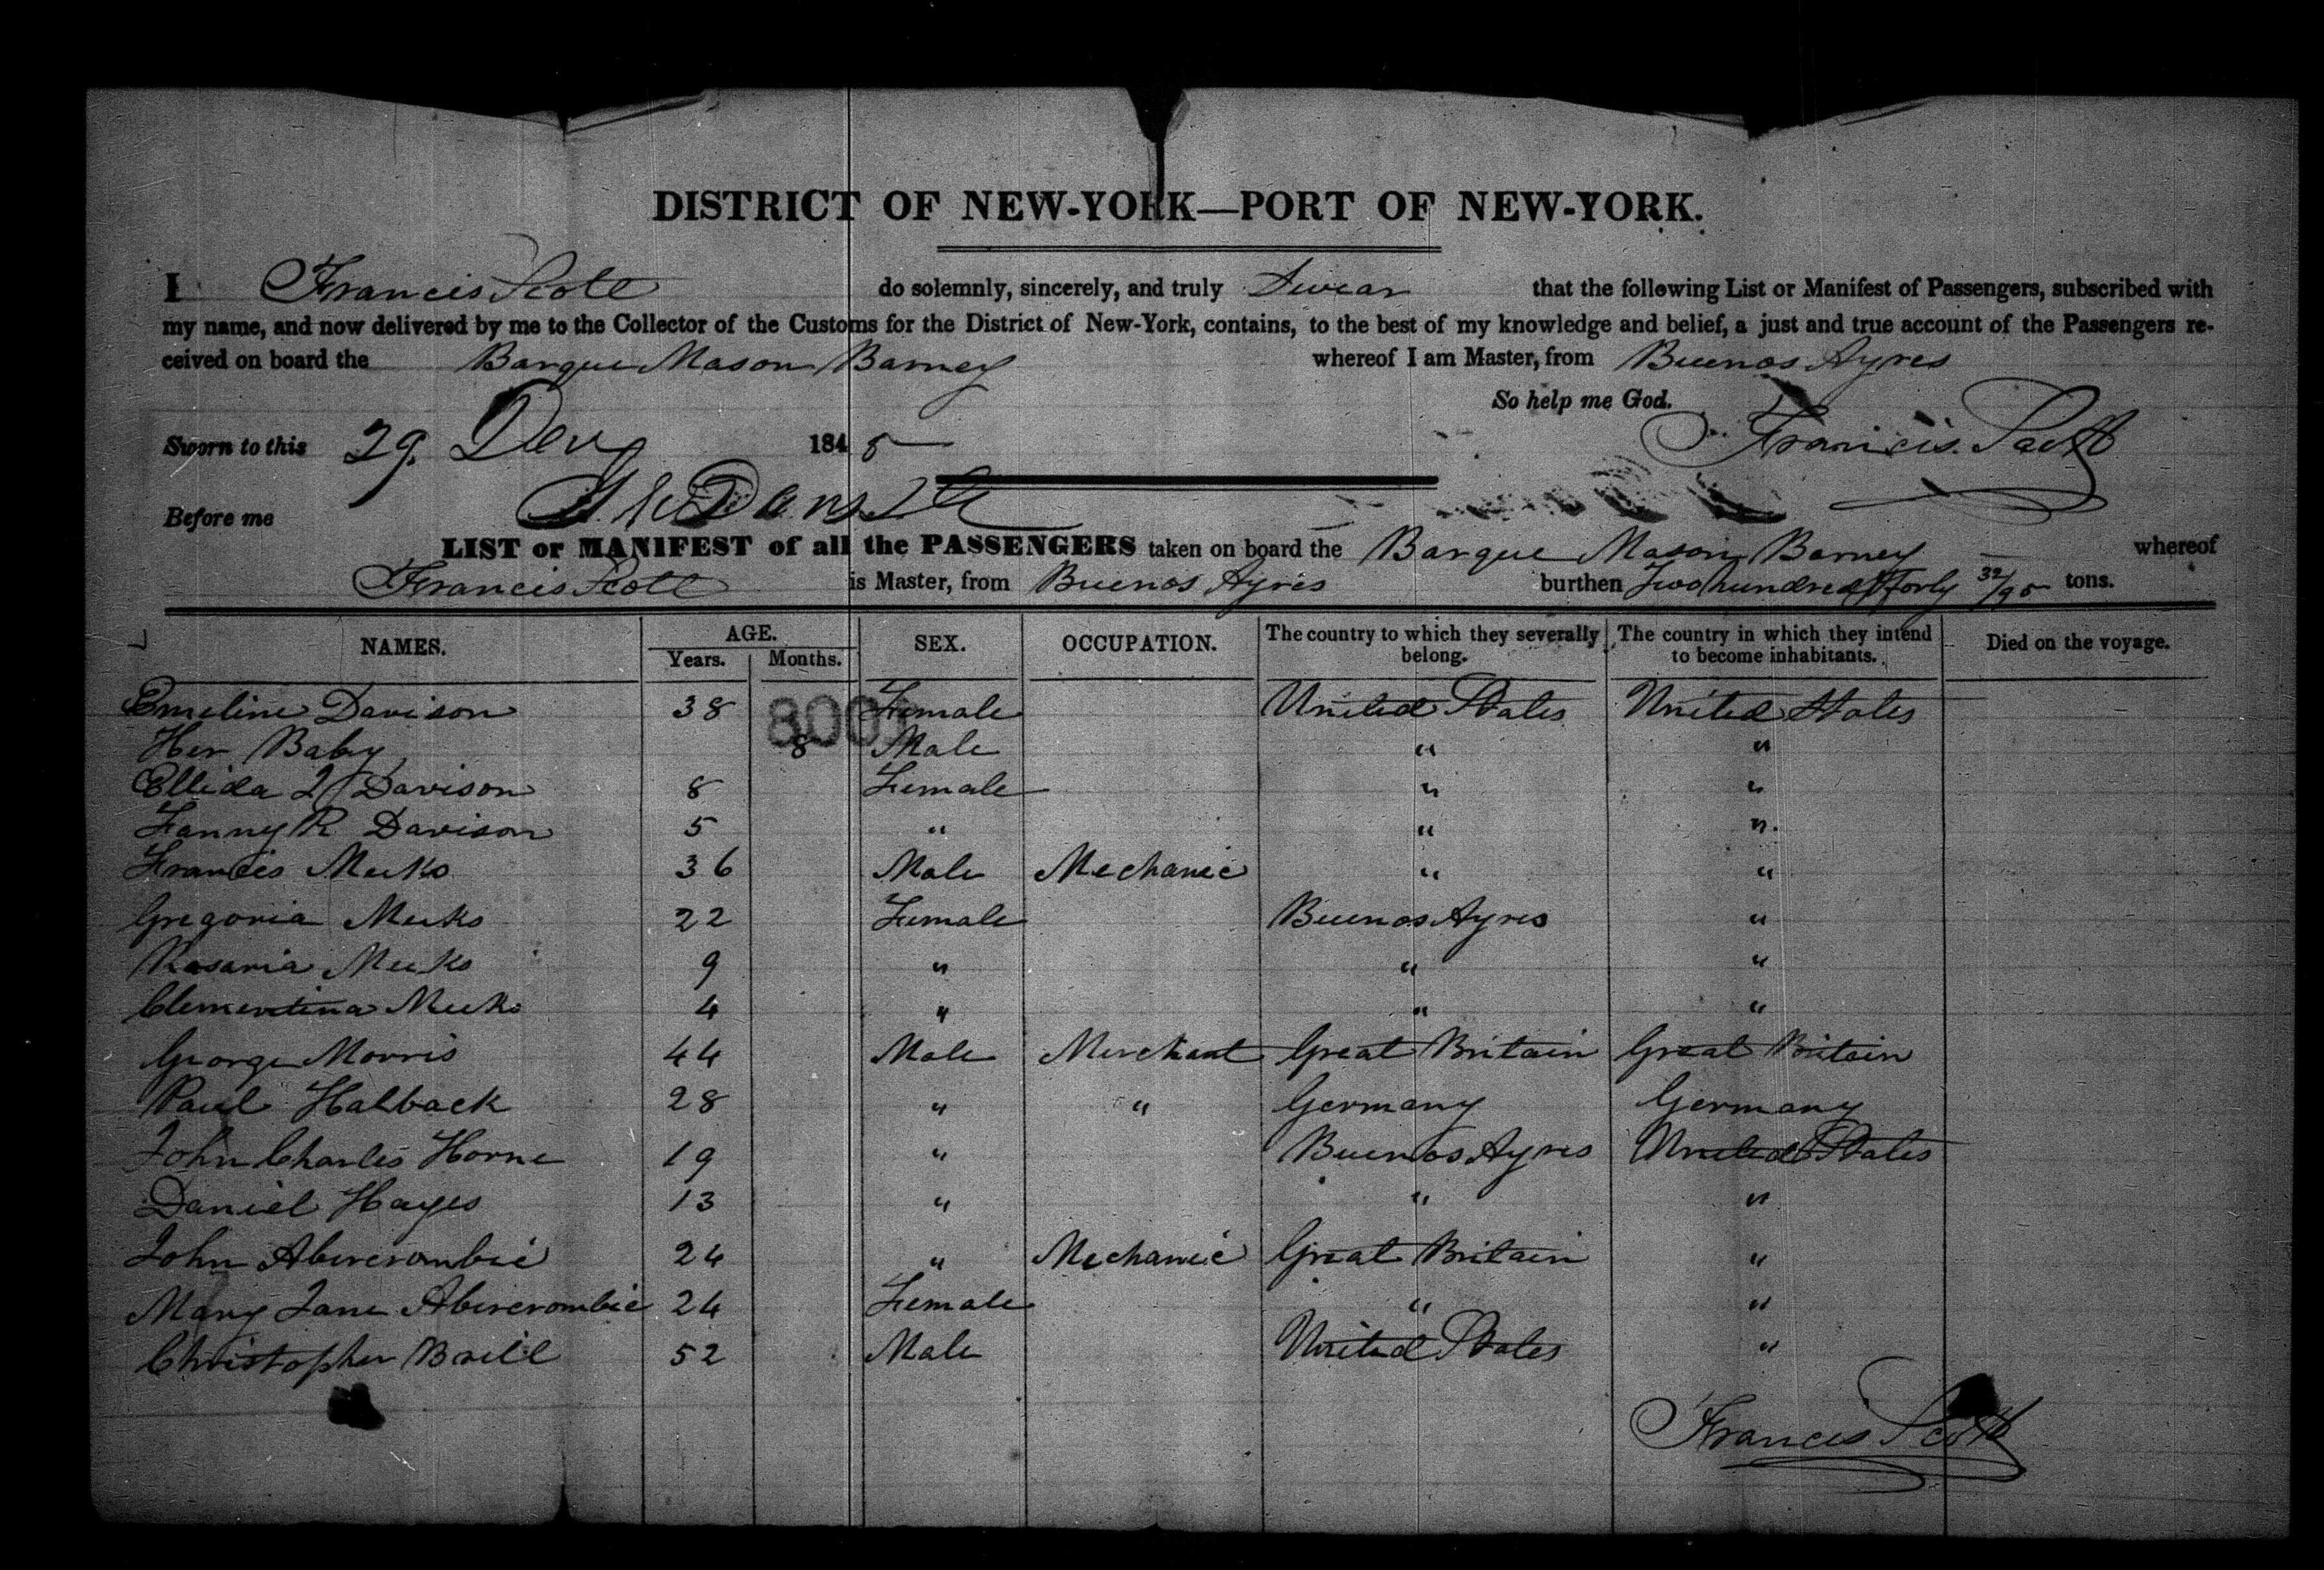 DISTRICT OF NEW-YORK—PORT OF NEW-YORK.
I Francis Scott do solemnly, sincerely, and truly Swear that the following List or Manifest of Passengers, subscribed with
my name, and now delivered by me to the Collector of the Customs for the District of New-York, contains, to the best of my knowledge and belief, a just and true account of the Passengers re-
ceived on board the Barque Mason Barney whereof I am Master, from Buenos Ayres
So help me God.
Sworn to this 29. 184 5 Francis Scott
Before me
LIST or MANIFEST of all the PASSENGERS taken on board the Barque Mason Barney whereof
Francis Scott is Master, from Buenos Ayres burthen Two hundred & forty 32/95 tons.
NAMES. AGE. Years. Months. SEX. OCCUPATION. The country to which they severally belong. The country in which they intend to become inhabitants. Died on the voyage.
8005
Emeline Davison 38 Female United States United States
Her Baby 8 Male " "
Ellida Davison 8 Female " "
Fanny R Davison 5 " " "
Francis Meeks 36 Male Mechanic " "
Gregoria Meeks 22 Female Buenos Ayres "
Rosaria Meeks 9 " " "
Clementina Meeks 4 " " "
George Morris 44 Male Merchant Great Britain Great Britain
Paul Halback 28 " " Germany Germany
John Charles Horne 19 " Buenos Ayres United States
Daniel Hayes 13 " " "
John Abercrombie 24 " Mechanic Great Britain "
Mary Jane Abercrombie 24 Female " "
Christopher Brill 52 Male United States "
Francis Scott